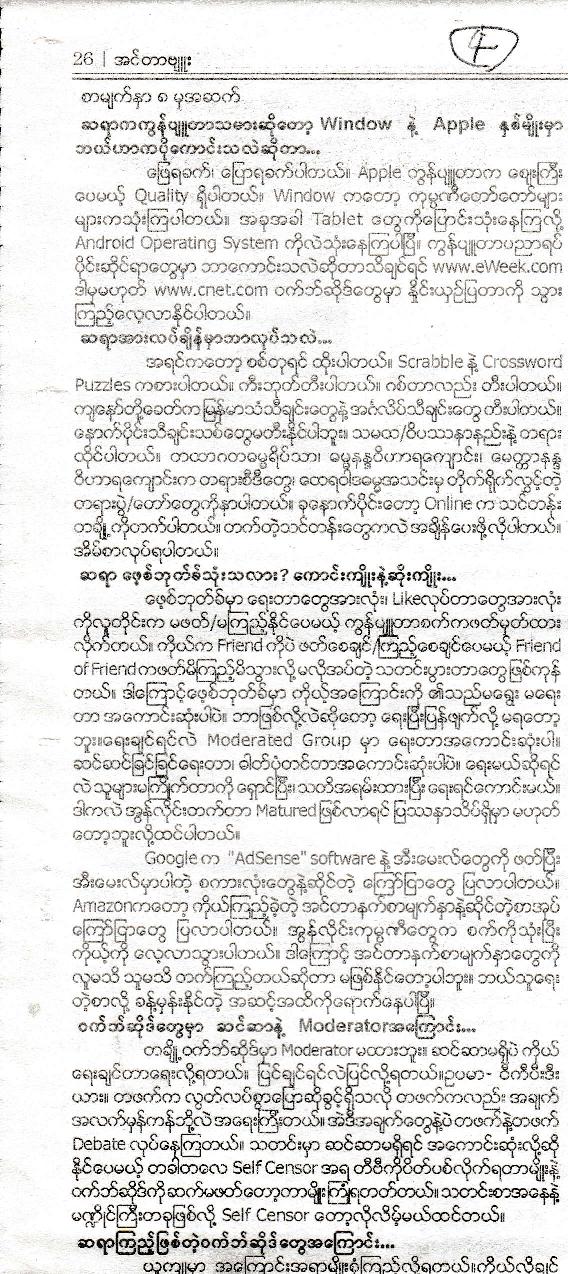 4
26 | အင်တာဗျူး
စာမျက်နှာ ၈ မှအဆက်
ဆရာကကွန်ပျူတာသမားဆိုတော့ Window နဲ့ Apple နှစ်မျိုးမှာ
ဘယ်ဟာကပိုကောင်းသလဲဆိုတာ...
ဖြေရခက်၊ ပြောရခက်ပါတယ်။ Apple ကွန်ပျူတာက ဈေးကြီး
ပေမယ့် Quality ရှိပါတယ်။ Window ကတော့ ကုမ္ပဏီတော်တော်များ
များကသုံးကြပါတယ်။ အခုအခါ Tablet တွေကိုပြောင်းသုံးနေကြလို့
Android Operating System ကိုလဲသုံးနေကြပါပြီ။ ကွန်ပျူတာပညာရပ်
ပိုင်းဆိုင်ရာတွေမှာ ဘာကောင်းသလဲဆိုတာသိချင်ရင် www.eWeek.com
ဒါမှမဟုတ် www.cnet.com ဝက်ဘ်ဆိုဒ်တွေမှာ နှိုင်းယှဉ်ပြတာကို သွား
ကြည့်လေ့လာနိုင်ပါတယ်။
ဆရာအားလပ်ချိန်မှာဘာလုပ်သလဲ...
အရင်ကတော့ စစ်တုရင် ထိုးပါတယ်။ Scrabble နဲ့ Crossword
Puzzles ကစားပါတယ်။ ကီးဘုတ်တီးပါတယ်။ ဂစ်တာလည်း တီးပါတယ်။
ကျနော်တို့ခေတ်ကမြန်မာသံသီချင်းတွေနဲ့အင်္ဂလိပ်သီချင်းတွေတီးပါတယ်။
နောက်ပိုင်းသီချင်းသစ်တွေမတီးနိုင်ပါဘူး။ သမထ/ဝိပဿနာနည်းနဲ့ တရား
ထိုင်ပါတယ်။ တထာဂတဓမ္မရိပ်သာ၊ ဓမ္မနန္ဒဝိဟာရကျောင်း၊ မေတ္တာနန္ဒ
ဝိဟာရကျောင်းက တရားစီဒီတွေ၊ ထေရဝါဒဓမ္မအသင်းမှ တိုက်ရိုက်လွှင့်တဲ့
တရားပွဲ/တော်တွေကိုနာပါတယ်။ ခုနောက်ပိုင်းတော့ Online က သင်တန်း
တချို့ကိုတက်ပါတယ်။ တက်တဲ့သင်တန်းတွေကလဲ အချိန်ပေးဖို့လိုပါတယ်။
အိမ်စာလုပ်ရပါတယ်။
ဆရာ ဖေ့စ်ဘုတ်ခ်သုံးသလား? ကောင်းကျိုးနဲ့ဆိုးကျိုး...
ဖေ့စ်ဘုတ်ခ်မှာ ရေးတာတွေအားလုံး၊ Likeလုပ်တာတွေအားလုံး
ကိုလူတိုင်းက မဖတ်/မကြည့်နိုင်ပေမယ့် ကွန်ပျူတာစက်ကဖတ်မှတ်ထား
လိုက်တယ်။ ကိုယ်က Friend ကိုပဲ ဖတ်စေချင်/ကြည့်စေချင်ပေမယ့် Friend
of Friendကဖတ်မိကြည့်မိသွားလို့ မလိုအပ်တဲ့ သတင်းပွားတာတွေဖြစ်ကုန်
တယ်။ ဒါကြောင့်ဖေ့စ်ဘုတ်ခ်မှာ ကိုယ့်အကြောင်းကို ၏သည်မရွေး မရေး
တာ အကောင်းဆုံးပါပဲ။ ဘာဖြစ်လို့လဲဆိုတော့ ရေးပြီးပြန်ဖျက်လို့ မရတော့
ဘူး။ရေးချင်ရင်လဲ Moderated Group မှာ ရေးတာအကောင်းဆုံးပါ။
ဆင်ဆင်ခြင်ခြင်ရေးတာ၊ ဓါတ်ပုံတင်တာအကောင်းဆုံးပါပဲ။ ရေးမယ်ဆိုရင်
လဲသူများမကြိုက်တာကို ရှောင်ပြီး၊ သတိအရမ်းထားပြီး ရေးရင်ကောင်းမယ်။
ဒါကလဲ အွန်လိုင်းတက်တာ Maturedဖြစ်လာရင် ပြဿနာသိပ်ရှိမှာ မဟုတ်
တော့ဘူးလို့ထင်ပါတယ်။
Google က "AdSense" software နဲ့ အီးမေးလ်တွေကို ဖတ်ပြီး
အီးမေးလ်မှာပါတဲ့ စကားလုံးတွေနဲ့ဆိုင်တဲ့ ကြော်ငြာတွေ ပြလာပါတယ်။
Amazonကတော့ ကိုယ်ကြည့်ခဲ့တဲ့ အင်တာနက်စာမျက်နှာနဲ့ဆိုင်တဲ့စာအုပ်
ကြော်ငြာတွေ ပြလာပါတယ်။ အွန်လိုင်းကုမ္ပဏီတွေက စက်ကိုသုံးပြီး
ကိုယ့်ကို လေ့လာသွားပါတယ်။ ဒါကြောင့် အင်တာနက်စာမျက်နှာတွေကို
လူမသိ သူမသိ တက်ကြည့်တယ်ဆိုတာ မဖြစ်နိုင်တော့ပါဘူး။ ဘယ်သူရေး
တဲ့စာလို့ ခန့်မှန်းနိုင်တဲ့ အဆင့်အထိကိုရောက်နေပါပြီ။
ဝက်ဘ်ဆိုဒ်တွေမှာ ဆင်ဆာနဲ့ Moderatorအကြောင်း...
တချို့ဝက်ဘ်ဆိုဒ်မှာ Moderator မထားဘူး။ ဆင်ဆာမရှိပဲ ကိုယ်
ရေးချင်တာရေးလို့ရတယ်။ ပြင်ချင်ရင်လဲပြင်လို့ရတယ်။ဥပမာ- ဝီကီပီးဒီး
ယား။ တဖက်က လွတ်လပ်စွာပြောဆိုခွင့်ရှိသလို တဖက်ကလည်း အချက်
အလက်မှန်ကန်ဘို့လဲအရေးကြီးတယ်။ အဲဒီအချက်တွေနဲ့ပဲတဖက်နဲ့တဖက်
Debate လုပ်နေကြတယ်။ သတင်းမှာ ဆင်ဆာမရှိရင် အကောင်းဆုံးလို့ဆို
နိုင်ပေမယ့် တခါတလေ Self Censor အရ တီဗီကိုပိတ်ပစ်လိုက်ရတာမျိုးနဲ့
ဝက်ဘ်ဆိုဒ်ကိုဆက်မဖတ်တော့တာမျိုးကြုံရတတ်တယ်။ သတင်းစာအနေနဲ့
မဏ္ဍိုင်ကြီးတခုဖြစ်လို့ Self Censor တော့လိုလိမ့်မယ်ထင်တယ်။
ဆရာကြည့်ဖြစ်တဲ့ဝက်ဘ်ဆိုဒ်တွေအကြောင်း...
ယူကျုမှာ အကြောင်းအရာမျိုးစုံကြည့်လို့ရတယ်။ကိုယ်လိုချင်